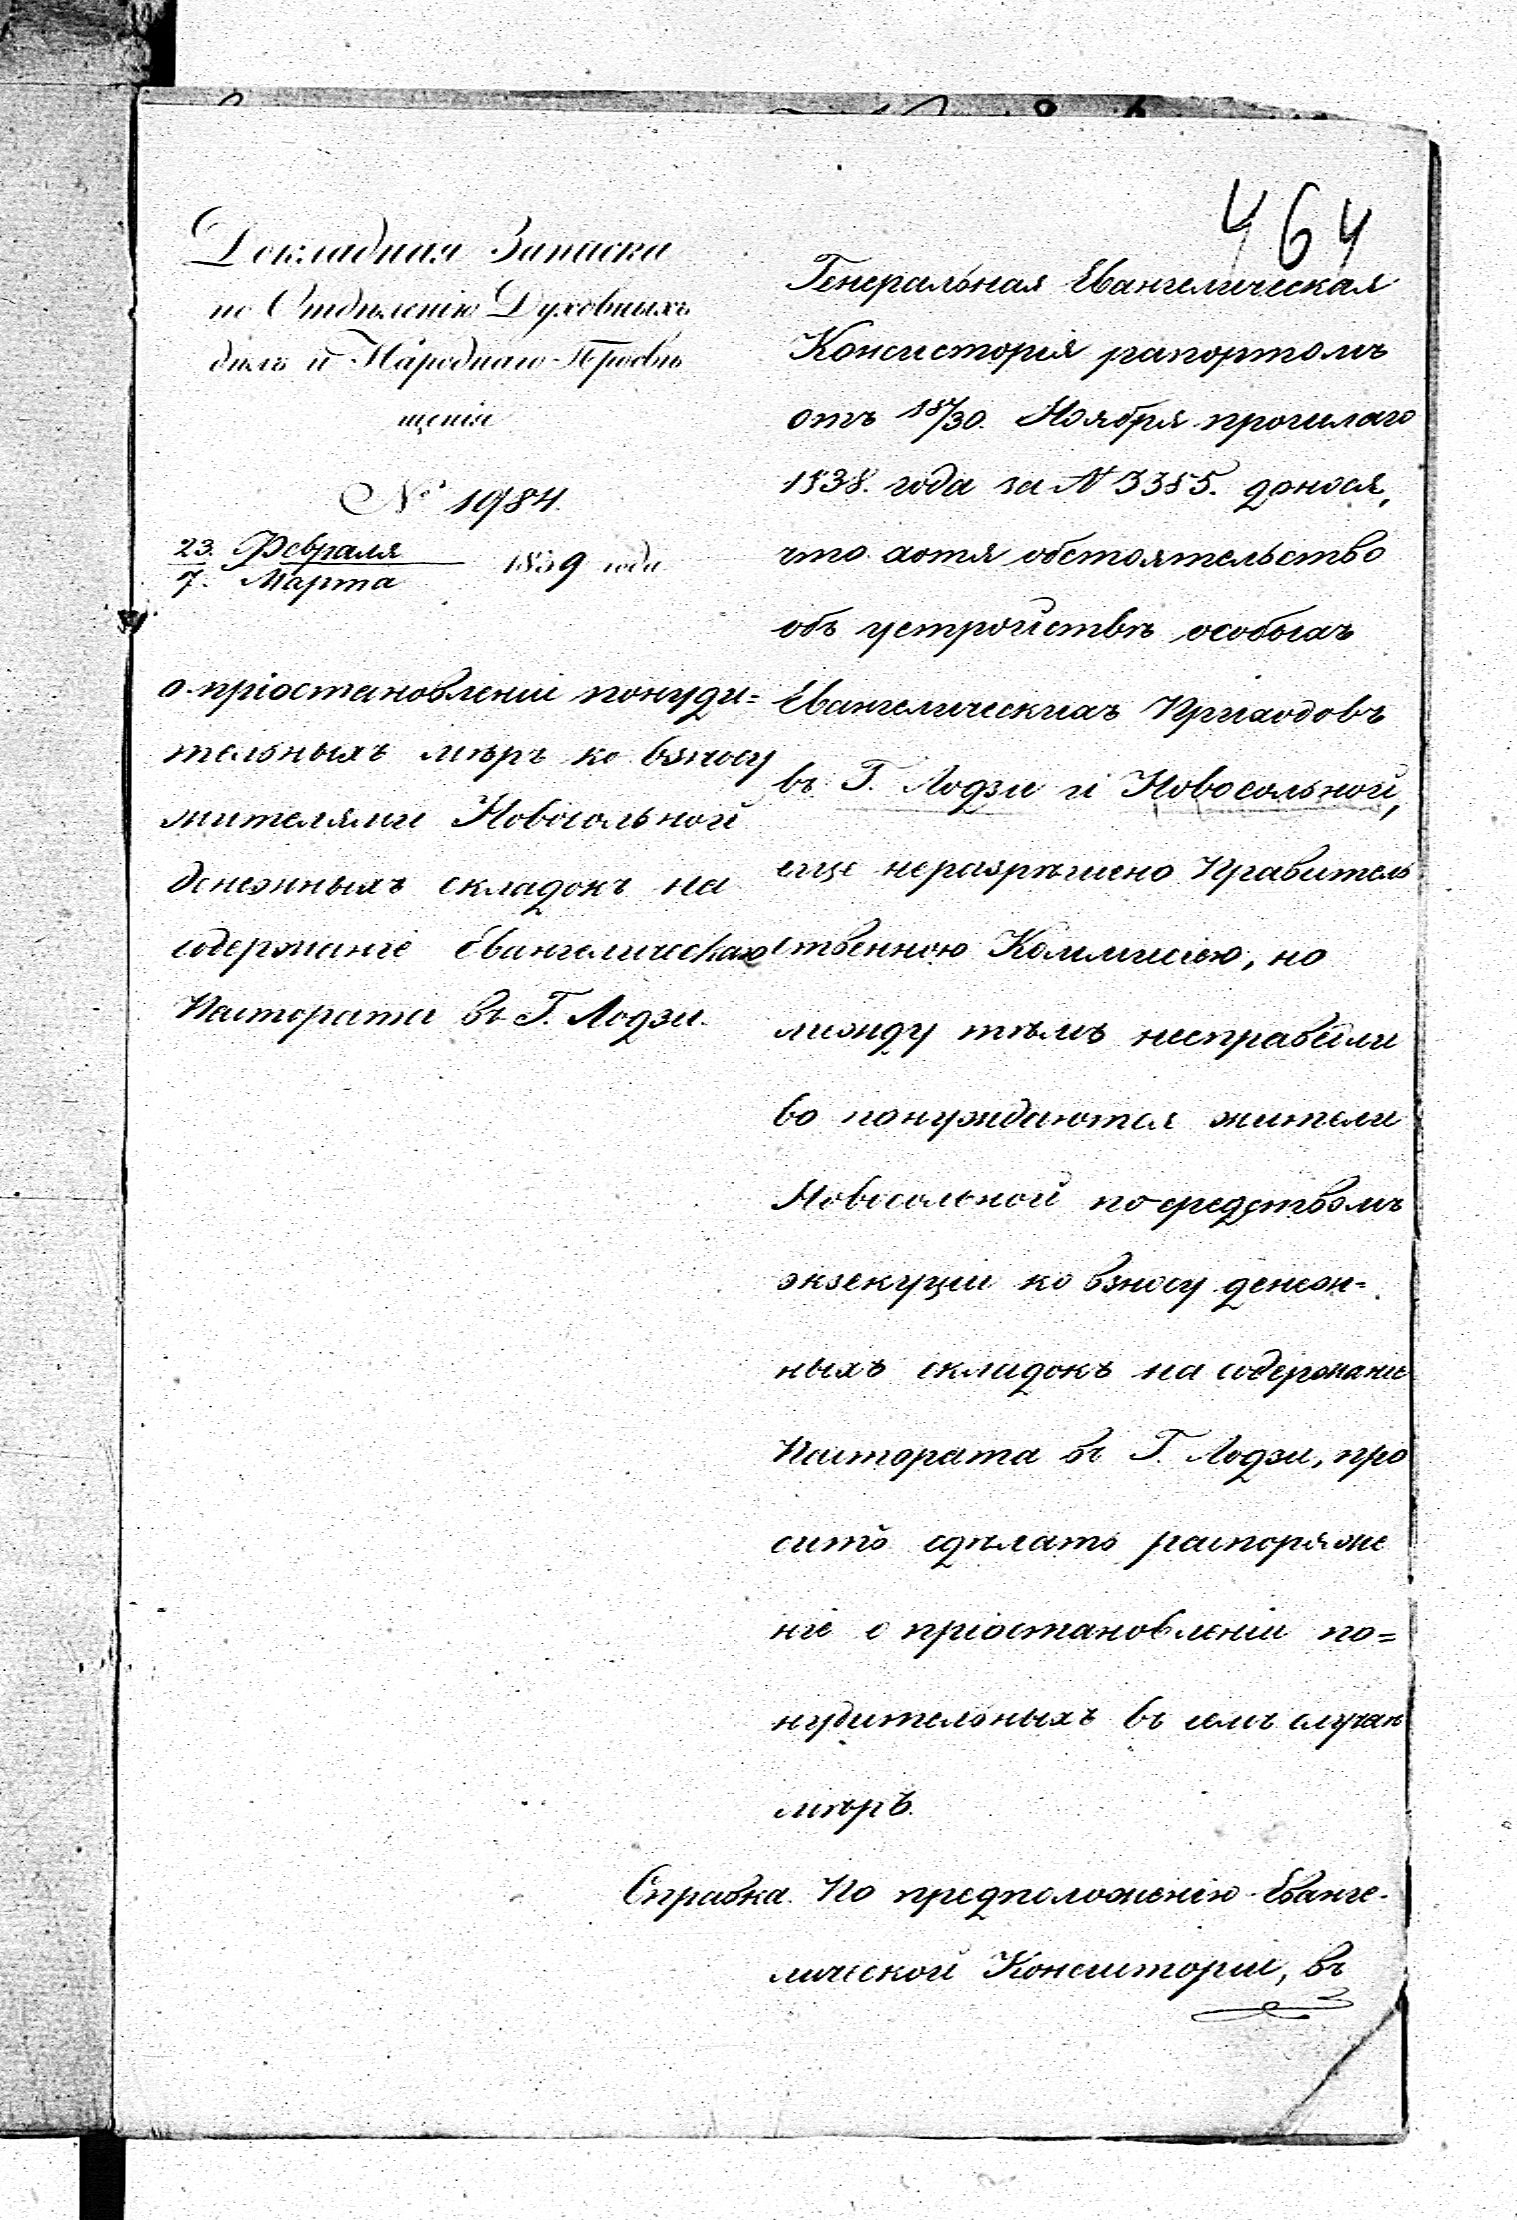 464
Докладная Записка
по Отдѣленію Духовныхъ
дѣлъ и Народнаго Просвѣ
щенія
№ 1984.
23. Февраля
7. Марта
1839 года
о пріостановленіи понуди=
тельныхъ мѣръ ко взносу
жителями Новосольной
денежныхъ складокъ на
содержаніе Евангелическаго
Пастората въ Г. Лодзи.
Генеральная Евангелическая
Консисторія рапортомъ
отъ 18/30. Ноября прошлаго
1838. года за № 3385. донося,
что хотя обстоятельство
объ устройствѣ особыхъ
Евангелическихъ Приходовъ
въ Г. Лодзи и Новосольной,
еще неразрѣшено Правитель
ственною Коммисіею, но
между тѣмъ несправедли
во понуждаются жители
Новосольной посредствомъ
экзекуціи ко взносу денеж=
ныхъ складокъ на содержаніе
Пастората въ Г. Лодзи, про
ситъ сдѣлать распоряже
ніе о пріостановленіи по=
нудительныхъ въ семъ случаѣ
мѣръ.
Справка. По предположенію Еванге-
лической Консисторіи, въ